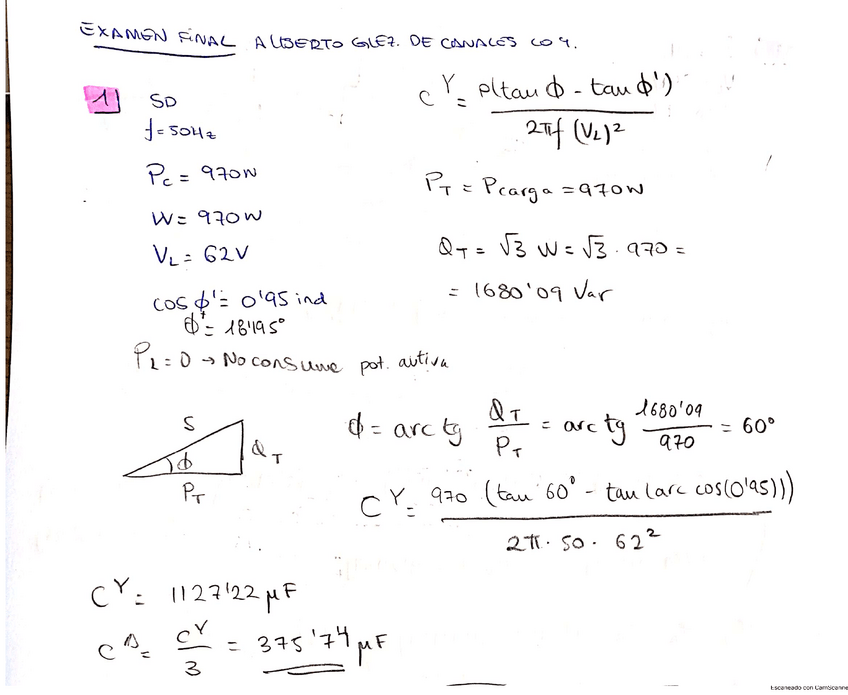 EXAMEN FINAL ALBERTO GLEZ. DE CANALES CO 4.
1 SD
f = 50Hz
Pc = 970W
W = 970W
VL = 62V
cos ϕ' = 0'95 ind
ϕ' = 18'195°
PL = 0 → No consume pot. activa
C^Y = P(tan ϕ - tan ϕ') / 2πf (VL)²
PT = Pcarga = 970W
QT = √3 W = √3 · 970 =
= 1680'09 Var
S
ϕ
QT
PT
ϕ = arc tg QT / PT = arc tg 1680'09 / 970 = 60°
C^Y = 970 (tan 60° - tan (arc cos(0'95))) / 2π · 50 · 62²
C^Y = 1127'22 μF
C^Δ = C^Y / 3 = 375'74 μF
Escaneado con CamScanne